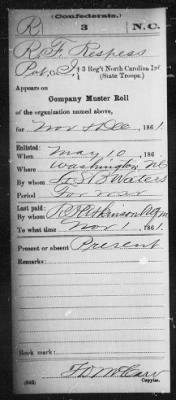 (Confederate.)
R 3 N.C.
R. F. Respess
Pvt, Co. I, 3 Reg't North Carolina Inf
(State Troops.)
Appears on
Company Muster Roll
of the organization named above,
for Nov & Dec, 1861.
Enlisted:
When May 10, 1861.
Where Washington NC
By whom B Waters
Period For war
Last paid:
By whom
To what time Nov 1, 1861.
Present or absent Present
Remarks:
Book mark:
(642)
Copyist.